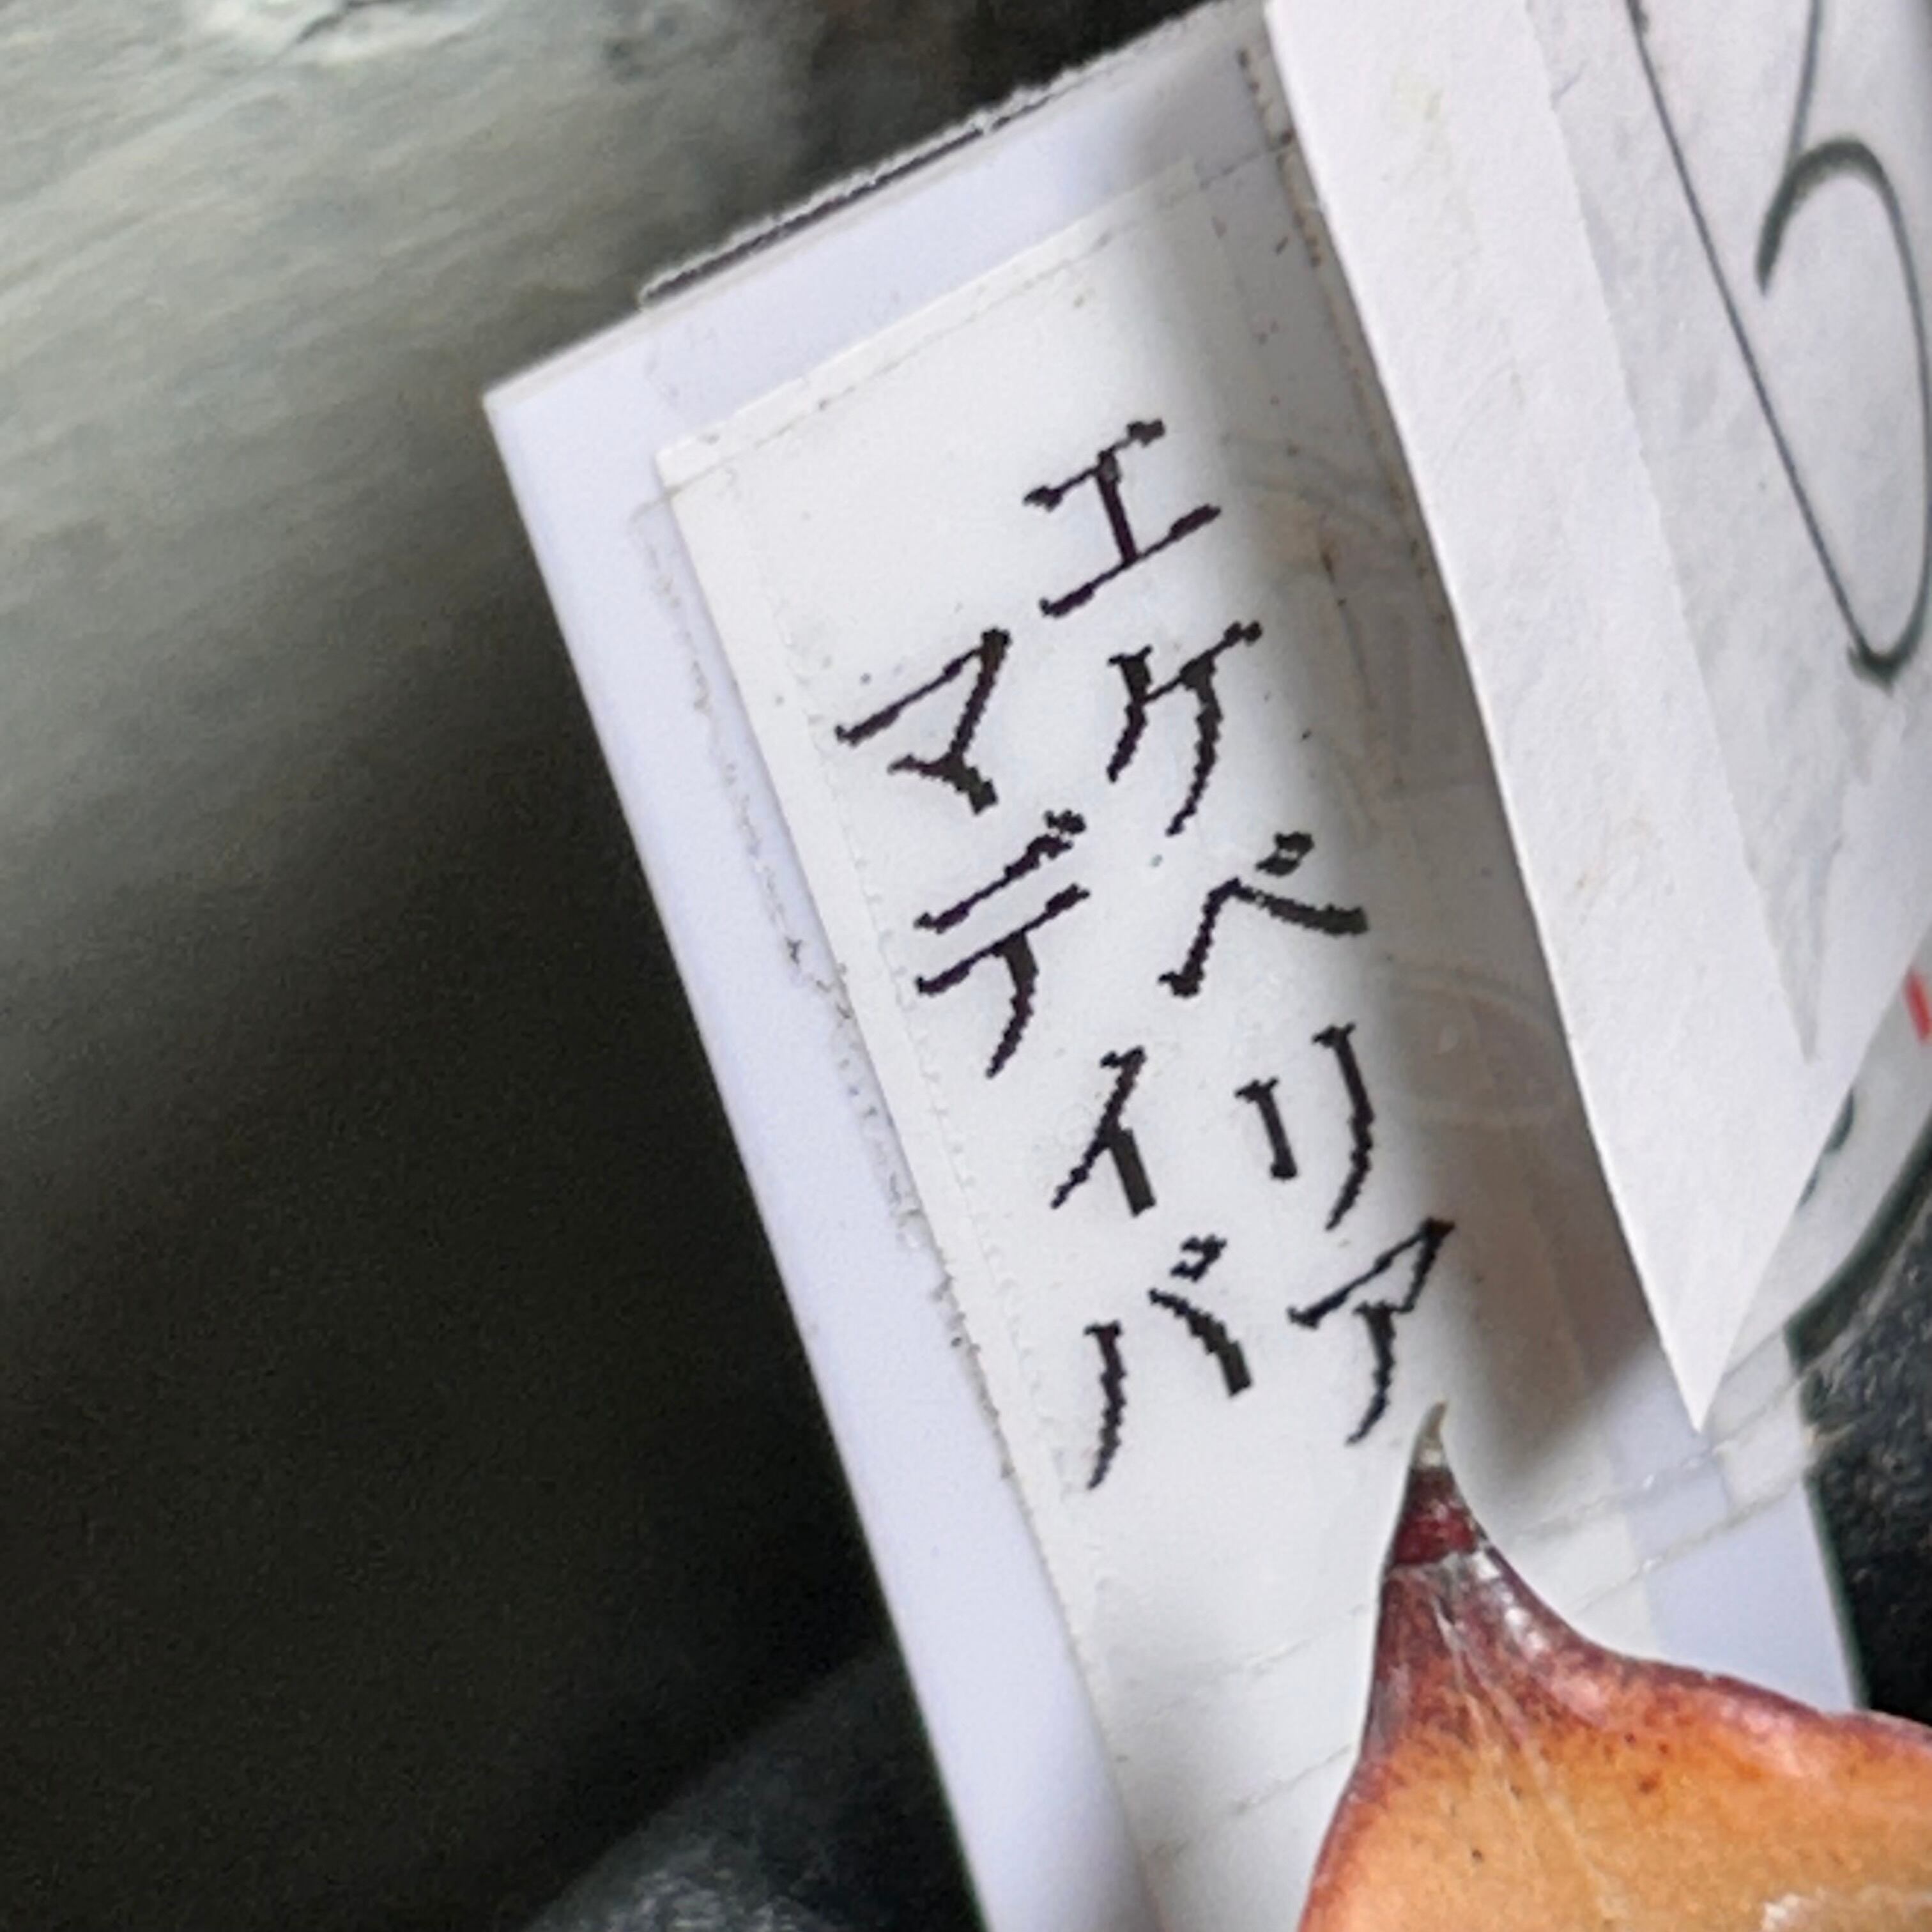 エケベリア
マディバ
5